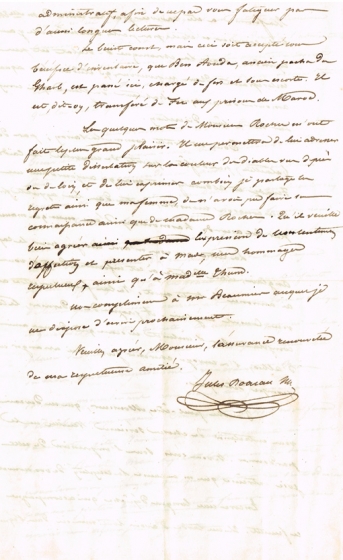 administratif, afin de ne pas vous fatiguer par
d'aussi longues lectures.
Le bruit court, mais ceci soit accepté sous
bénéfice d'inventaire, que Ben Aouda, ancien pacha du
Gharb, est passé ici, chargé de fers et sous escorte. Il
est dit-on, transféré de Fez aux prisons de Maroc.
Les quelques mots de Monsieur Rocher m'ont
fait le plus grand plaisir. Il me permettra de lui adresser
une petite dissertation sur les couleurs du diable vu de près
ou de loin et de lui exprimer combien je partage les
regrets ainsi que ma femme, de n'avoir pu faire sa
connaissance ainsi que de madame Rocher. Qu'il veuille
bien agréer ainsi l'expression de nos sentiments
d'affection et présenter à mad. mes hommages
respectueux, ainsi qu'à madelle
mes compliments à mr Beaumier auquel je
me dispose d'écrire prochainement.
Veuillez agréer, Monsieur, l'assurance renouvelée
de ma respectueuse amitié.
Jules